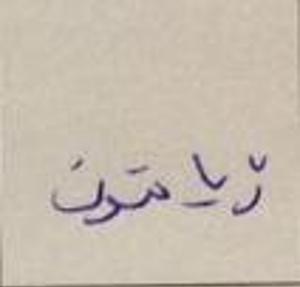 زيا متون